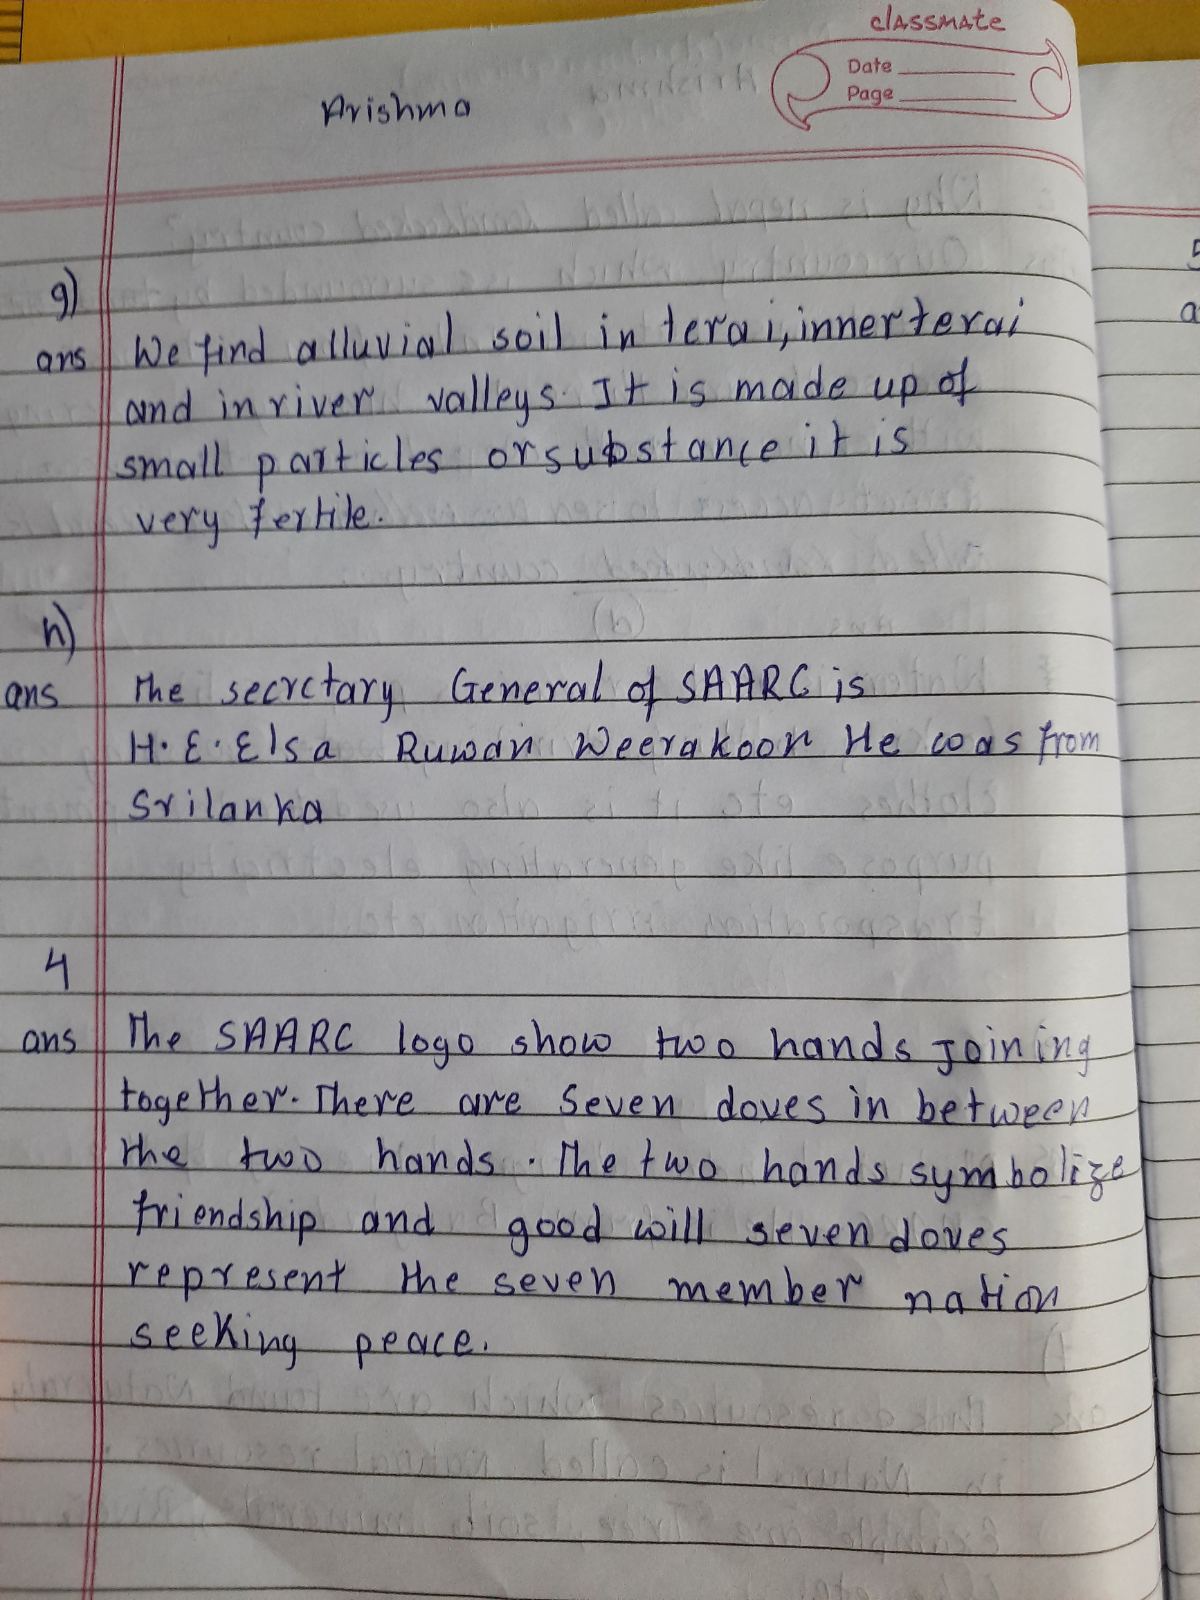 classmate
Date
Page
Arishma
g)
ans We find alluvial soil in terai, inner terai
and in river valleys. It is made up of
small particles or substance it is
very fertile.
h)
ans The secretary General of SAARC is
H.E. Elsa Ruwan Weerakoon He was from
Srilanka
4
ans The SAARC logo show two hands Joining
together. There are Seven doves in between
the two hands. The two hands symbolize
friendship and good will seven doves
represent the seven member nation
seeking peace.
5
a